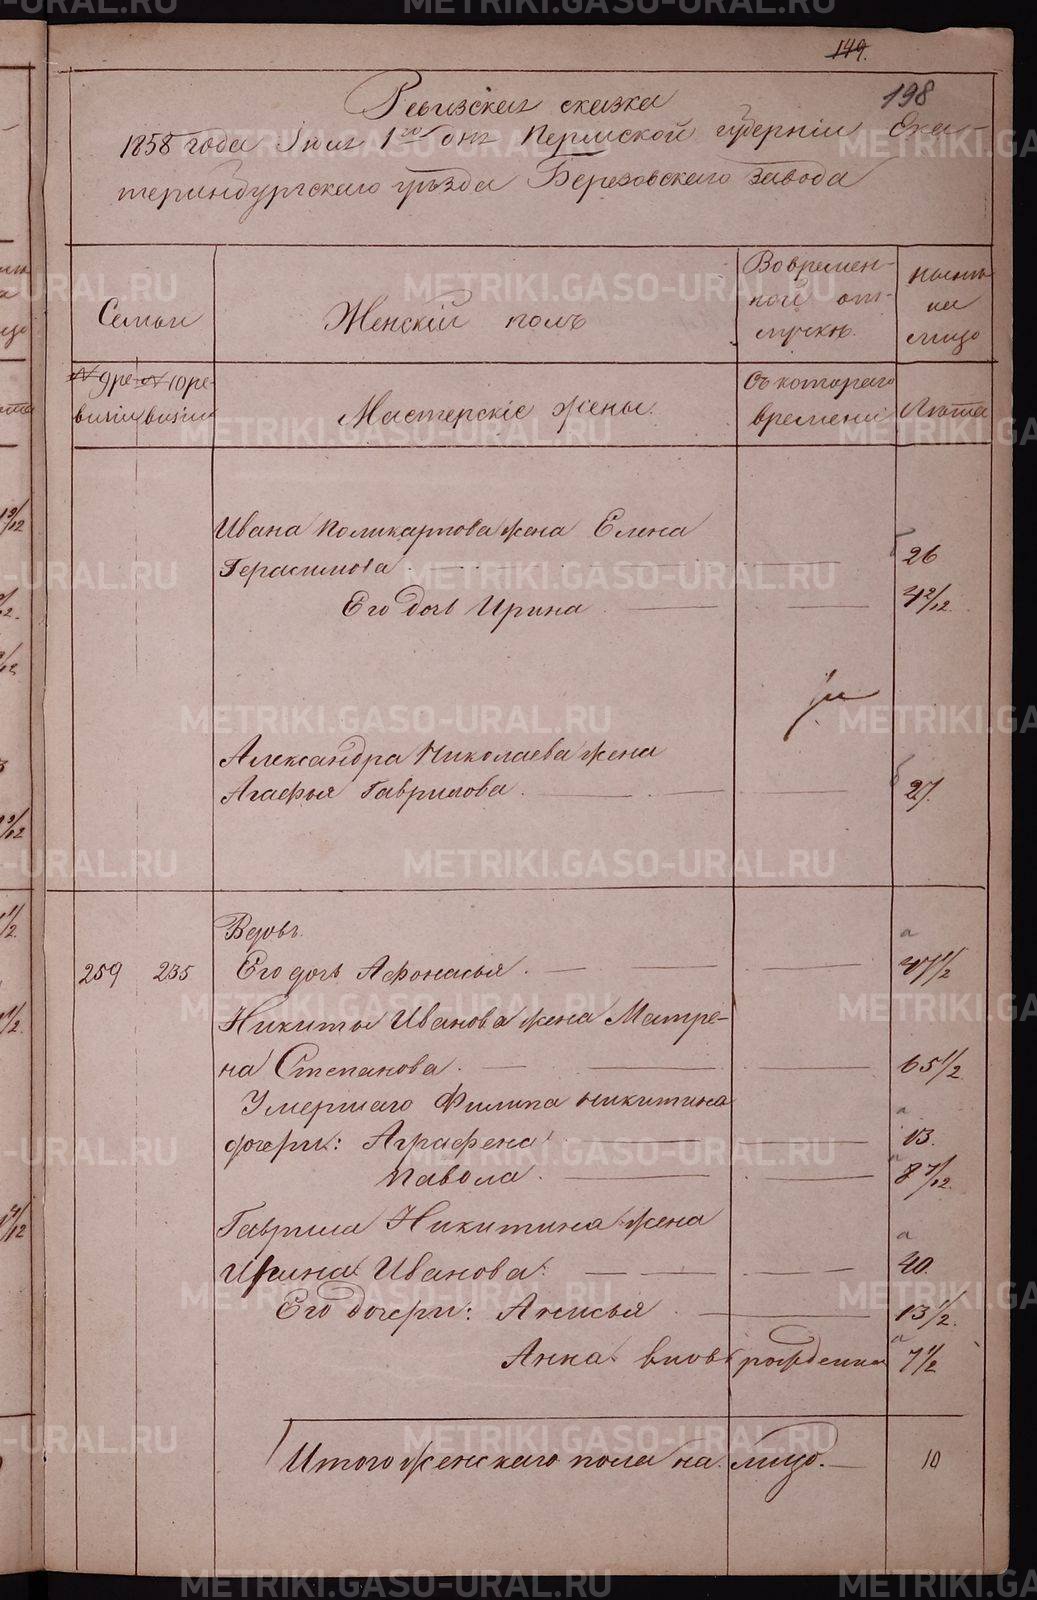 149.
198
Ревизская сказка
1858 года Июля 1го дня Пермской губернiи Ека-
теринбургскаго уѣзда Березовскаго завода
Семьи
Женскiй полъ
Во времен-
ной от-
лучкѣ.
Налицо
№ 9 ре- № 10 ре-
визiи визiи
Мастерскiе жены.
Съ котораго
времени
Лѣта
Ивана Поликарпова жена Елена
Герасимова 26
Его дочь Ирина 4 2/12.
Александра Николаева жена
Агафья Гаврилова. 27.
Вдовъ.
259 235 Его дочь Афонасья. 47 1/2
Никиты Иванова жена Матре-
на Степанова. 65 1/2
Умершаго Филипа Никитина
дочери: Аграфена 13.
Павола. 8 7/12.
Гаврила Никитина жена
Ирина Иванова. 40.
Его дочери: Анисья 13 1/2.
Анна вновь рожденная 7 1/2
Итого женскаго пола на лицо. 10
METRIKI.GASO-URAL.RU